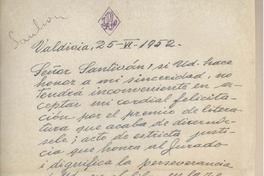 Valdivia, 25-VI-1952.
Señor Santiván, si Ud. hace
honor a mi sinceridad, no
tendrá inconveniente en a-
ceptar mi cordial felicita-
ción por el premio de litera-
tura que acaba de discernír-
sele; acto de estricta justi-
cia que honra al Jurado
i dignifica la perseverancia